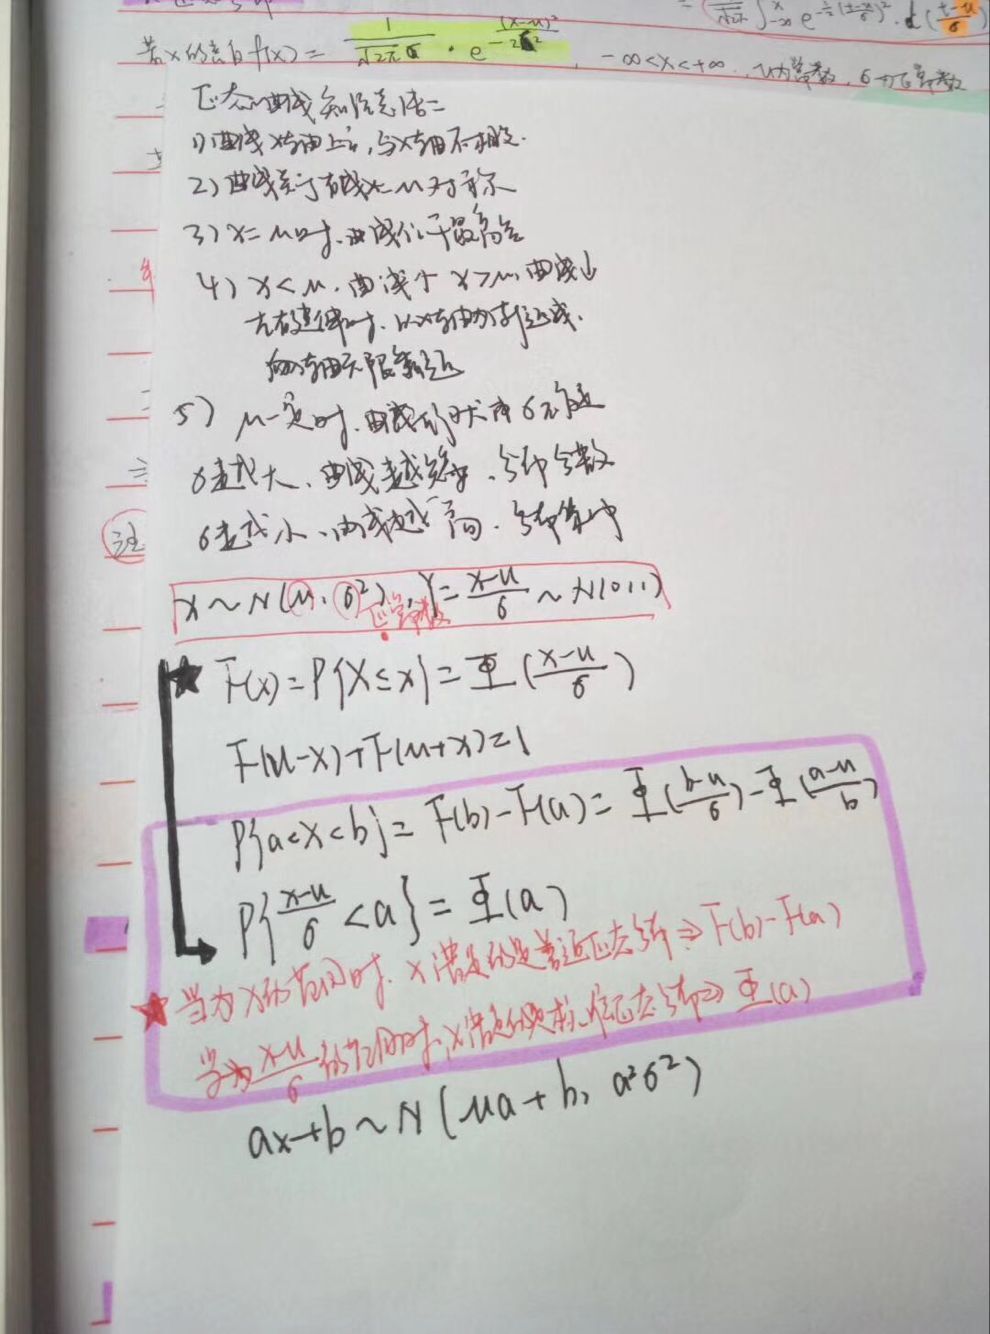 = 1/√2π ∫-∞^x e^-½(t-u/σ)² · d(t-u/σ)
若x的 f(x) = 1/√2πσ · e^-(x-u)²/2σ² , -∞<x<+∞, u为常数, σ为正常数
正态曲线知识总结:
1)曲线x轴上方,与x轴不相交.
2)曲线关于直线x=μ对称
3) x=μ时.曲线位于最高点
4) x<μ.曲线↑ x>μ.曲线↓
左右延伸时.以x轴为渐近线.
向x轴无限靠近
5) μ一定时.曲线的形状由σ确定
σ越大、曲线越矮.分布分散
σ越小、曲线越高.分布集中
注
x~N(μ.σ²), Y=x-u/σ ~N(0,1)
正常数
★ F(x)=P{X≤x}=Φ(x-u/σ)
F(u-x)+F(u+x)=1
P{a<X<b}=F(b)-F(a)=Φ(b-u/σ)-Φ(a-u/b)
P{x-u/σ<a}=Φ(a)
★当为x的范围时.x满足的是普通正态分布⇒F(b)-F(a)
当为x-u/σ的范围时,x满足的是标准正态分布⇒Φ(a)
ax+b~N(ua+b, a²σ²)